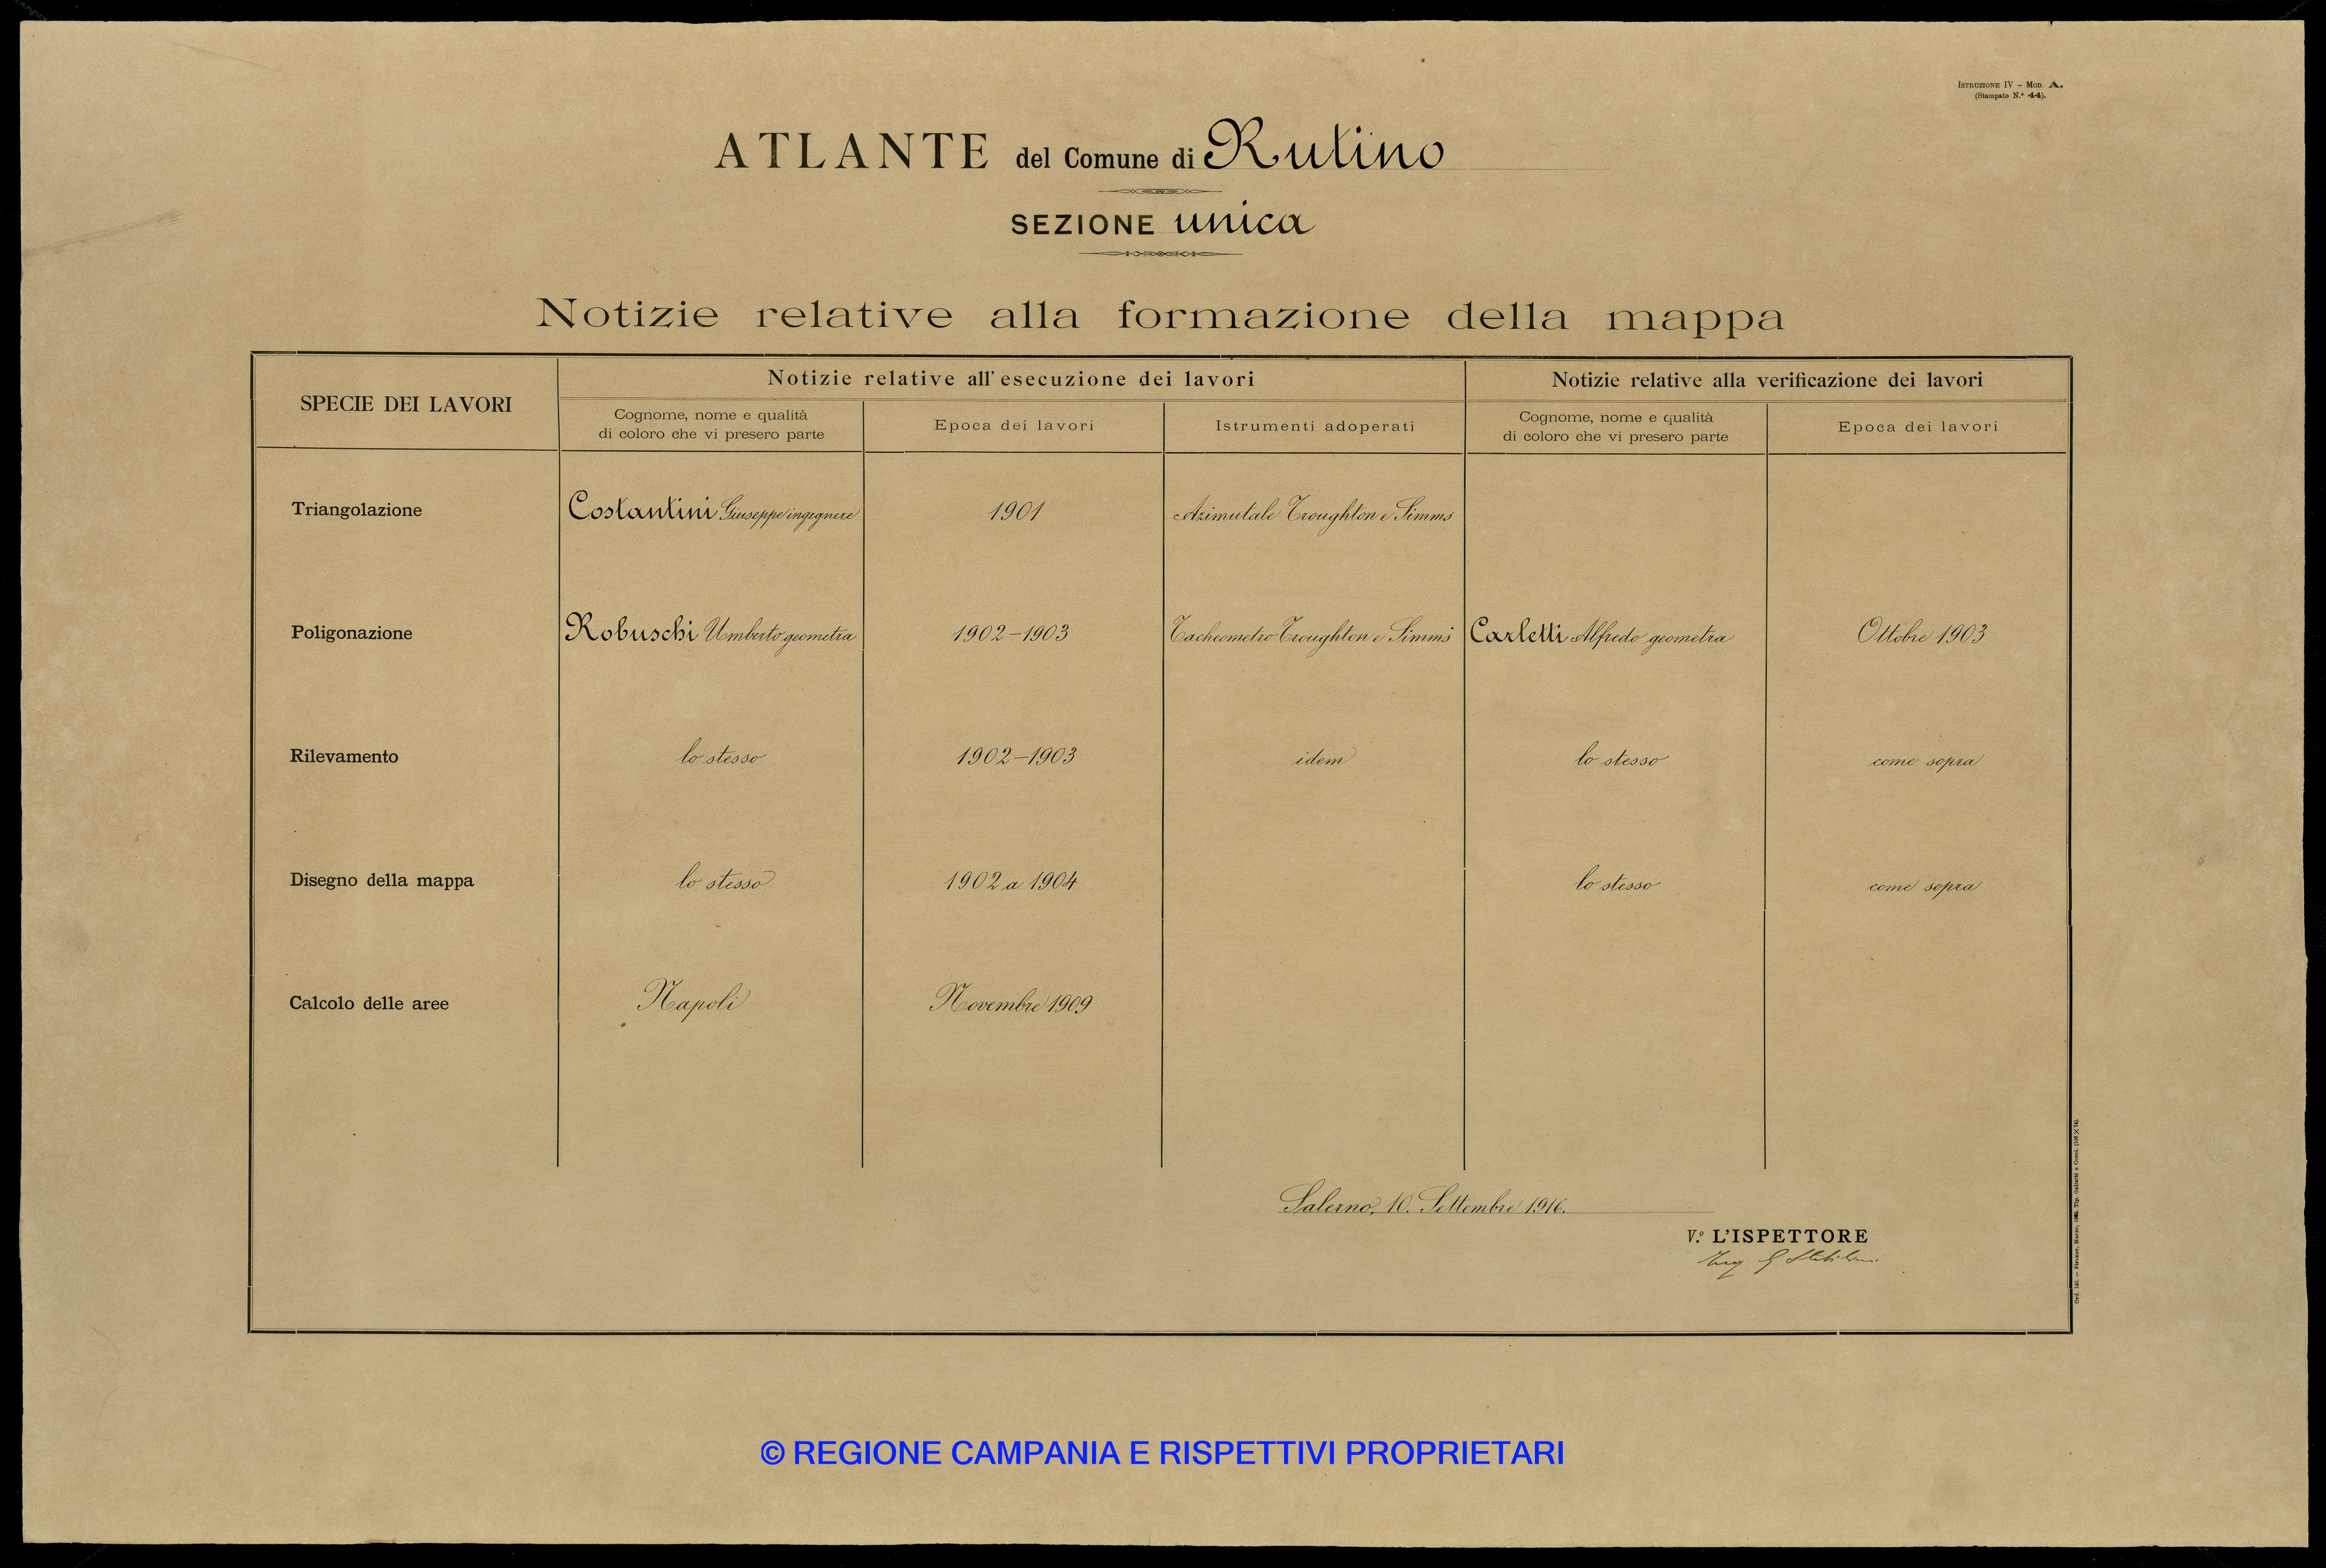 ISTRUZIONE IV – MOD. A.
(Stampato N.º 44).
ATLANTE del Comune di Rutino
SEZIONE unica
Notizie relative alla formazione della mappa
SPECIE DEI LAVORI
Notizie relative all'esecuzione dei lavori
Notizie relative alla verificazione dei lavori
Cognome, nome e qualità
di coloro che vi presero parte
Epoca dei lavori
Istrumenti adoperati
Cognome, nome e qualità
di coloro che vi presero parte
Epoca dei lavori
Triangolazione
Costantini Giuseppe ingegnere
1901
Azimutale Troughton e Simms
Poligonazione
Robuschi Umberto geometra
1902–1903
Tacheometro Troughton e Simms
Carletti Alfredo geometra
Ottobre 1903
Rilevamento
lo stesso
1902–1903
idem
lo stesso
come sopra
Disegno della mappa
lo stesso
1902 a 1904
lo stesso
come sopra
Calcolo delle aree
Napoli
Novembre 1909
Salerno, 10. Settembre 1916.
V.º L'ISPETTORE
Ing G
Firenze, Marzo, Tip. Galletti e Cocci.
© REGIONE CAMPANIA E RISPETTIVI PROPRIETARI